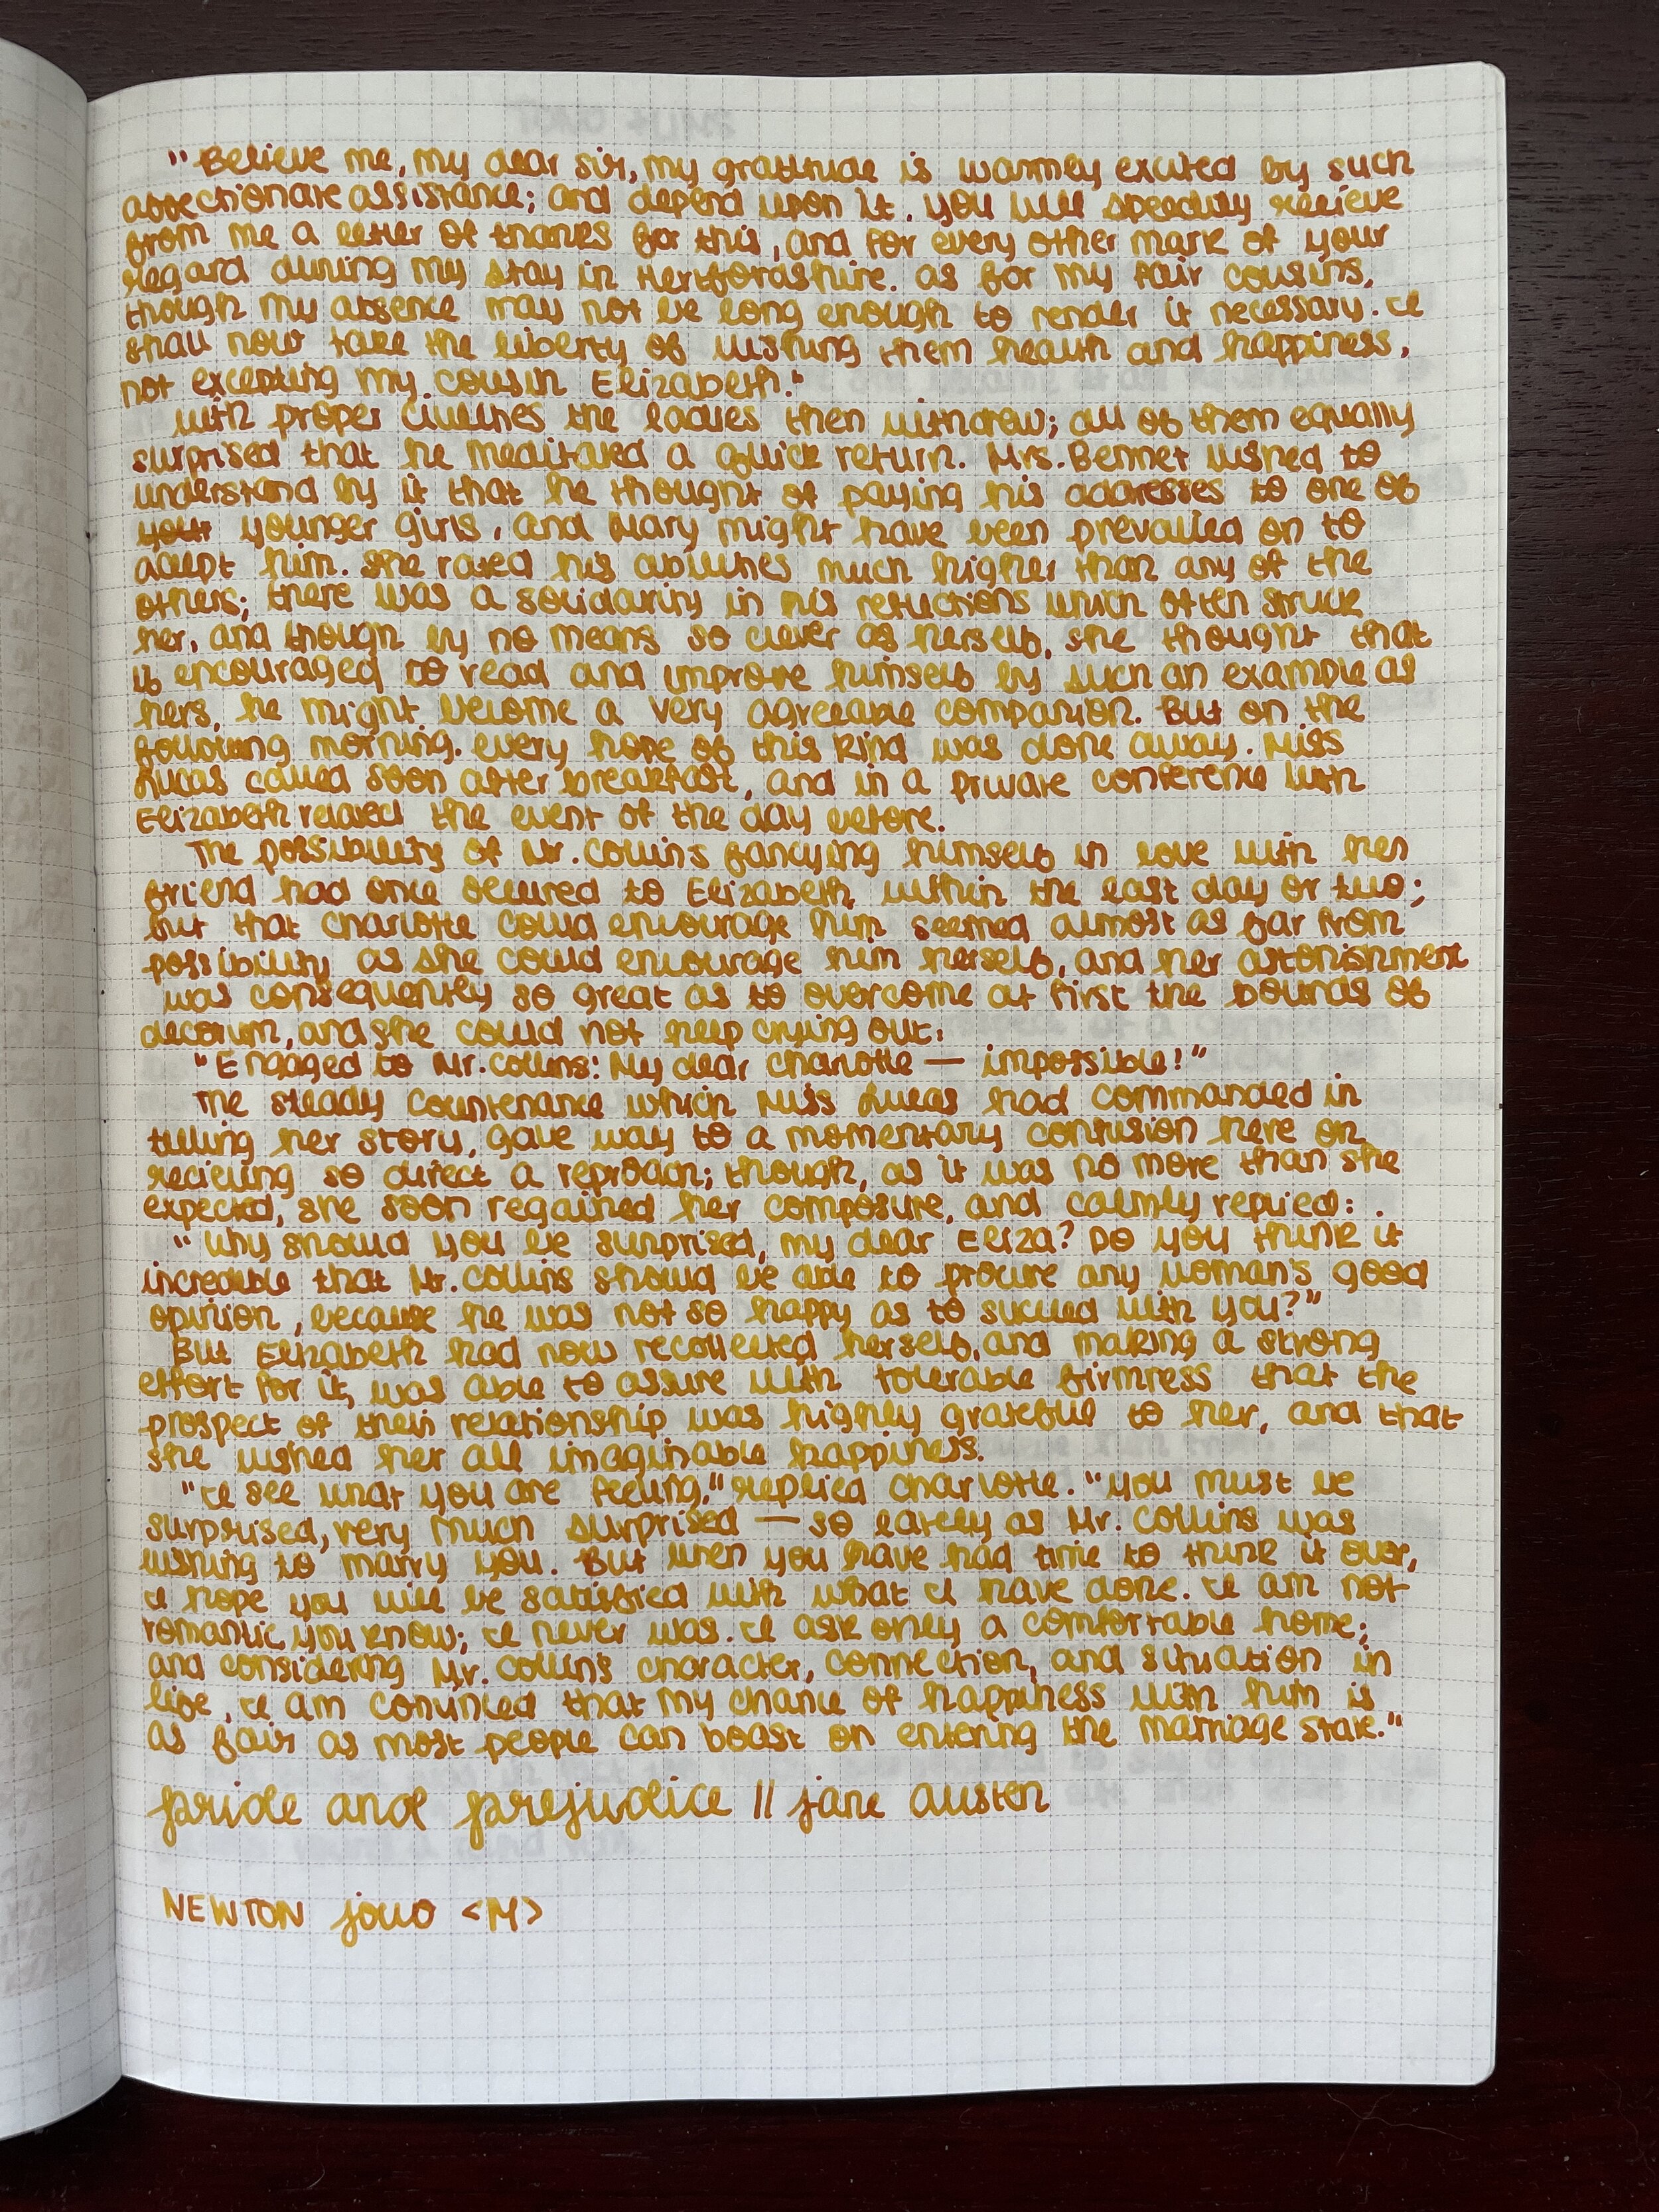 "Believe me, my dear sir, my gratitude is warmly excited by such
affectionate assistance; and depend upon it. you will speedily recieve
from me a letter of thanks for this, and for every other mark of your
regard during my stay in Hertfordshire. as for my fair cousins,
though my absence may not be long enough to render it necessary. I
shall now take the liberty of wishing them health and happiness,
not excepting my cousin Elizabeth."
with proper civilities the ladies then withdrew; all of them equally
surprised that he meditated a quick return. Mrs. Bennet wished to
understand by it that he thought of paying his addresses to one of
your younger girls, and Mary might have been prevailed on to
accept him. She rated his abilities much higher than any of the
others; there was a solidarity in his reflections which often struck
her, and though by no means so clever as herself, she thought that
if encouraged to read and improve himself by such an example as
hers, he might become a very agreeable companion. But on the
following morning. every hope of this kind was done away. Miss
Lucas called soon after breakfast, and in a private conference with
Elizabeth related the event of the day before.
The possibility of Mr. Collins fancying himself in love with her
friend had once occured to Elizabeth within the last day or two;
but that Charlotte could encourage him seemed almost as far from
possibility as she could encourage him herself, and her astonishment
was consequently so great as to overcome at first the bounds of
decorum, and she could not help crying out:
"Engaged to Mr. Collins! My dear Charlotte — impossible!"
The steady countenance which Miss Lucas had commanded in
telling her story, gave way to a momentary confusion here on
recieving so direct a reproach; though, as it was no more than she
expected, she soon regained her composure, and calmly replied:
"Why should you be surprised, my dear Eliza? Do you think it
incredible that Mr. Collins should be able to procure any woman's good
opinion, because he was not so happy as to succeed with you?"
But Elizabeth had now recollected herself, and making a strong
effort for it, was able to assure with tolerable firmness that the
prospect of their relationship was highly grateful to her, and that
she wished her all imaginable happiness.
"I see what you are feeling," replied Charlotte. "you must be
surprised, very much surprised — so lately as Mr. Collins was
wishing to marry you. But when you have had time to think it over,
I hope you will be satisfied with what I have done. I am not
romantic, you know; I never was. I ask only a comfortable home;
and considering Mr. Collin's character, connection, and situation in
life, I am convinced that my chance of happiness with him is
as fair as most people can boast on entering the marriage state."
pride and prejudice // jane austen
NEWTON jouo <M>